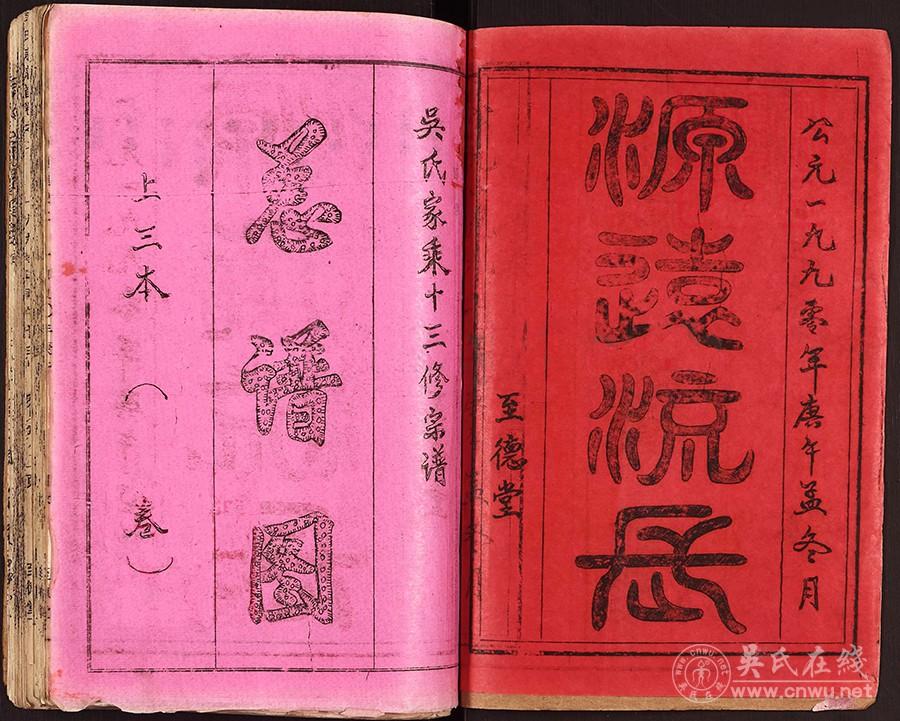 公元一九九零年庚午孟冬月
源遠流長
至德堂
吳氏家乘十三修宗谱
总谱图
上三本（ 卷）
吳氏在线
www.cnwu.net